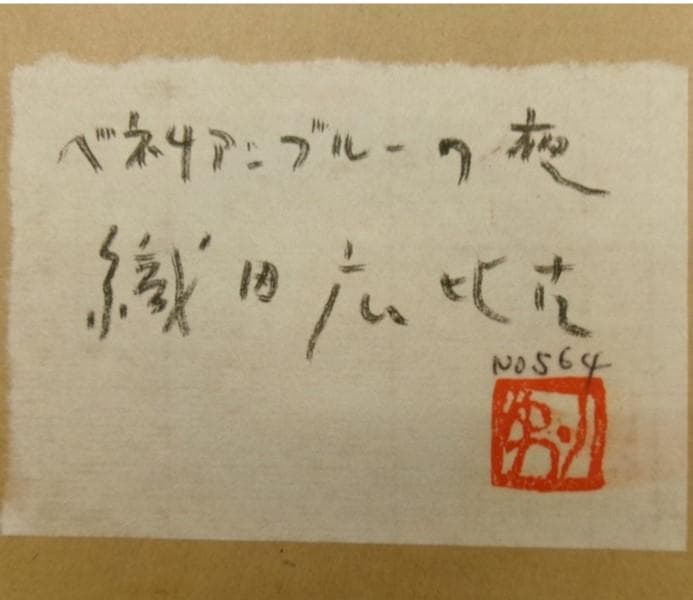 ベネチアンブルーの夜
織田広比古
NO564